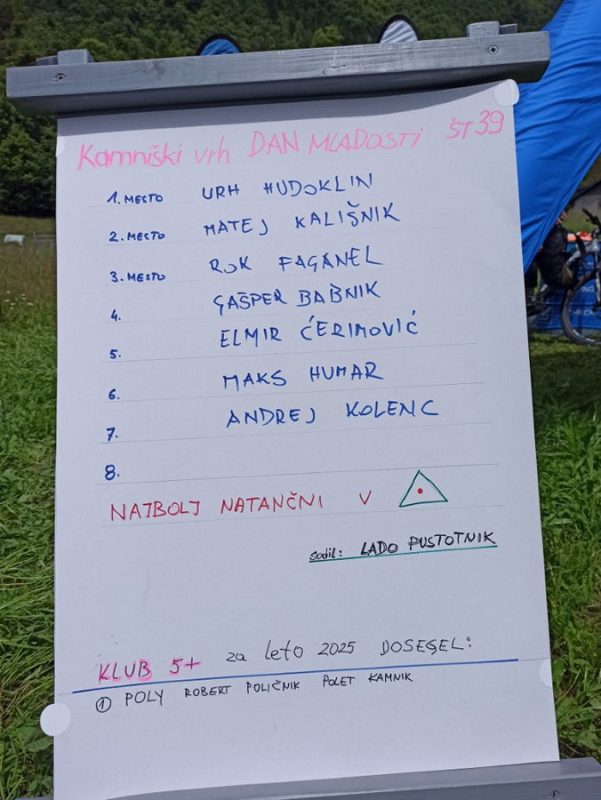 Kamniški vrh DAN MLADOSTI ŠT 39
1. MESTO URH HUDOKLIN
2. MESTO MATEJ KALIŠNIK
3. MESTO ROK FAGANEL
4. GAŠPER BABNIK
5. ELMIR ĆERIMOVIĆ
6. MAKS HUMAR
7. ANDREJ KOLENC
8.
NAJBOLJ NATANČNI V
sodil: LADO PUSTOTNIK
KLUB 5+ za leto 2025 DOSEGEL:
1 POLY ROBERT POLIČNIK POLET KAMNIK